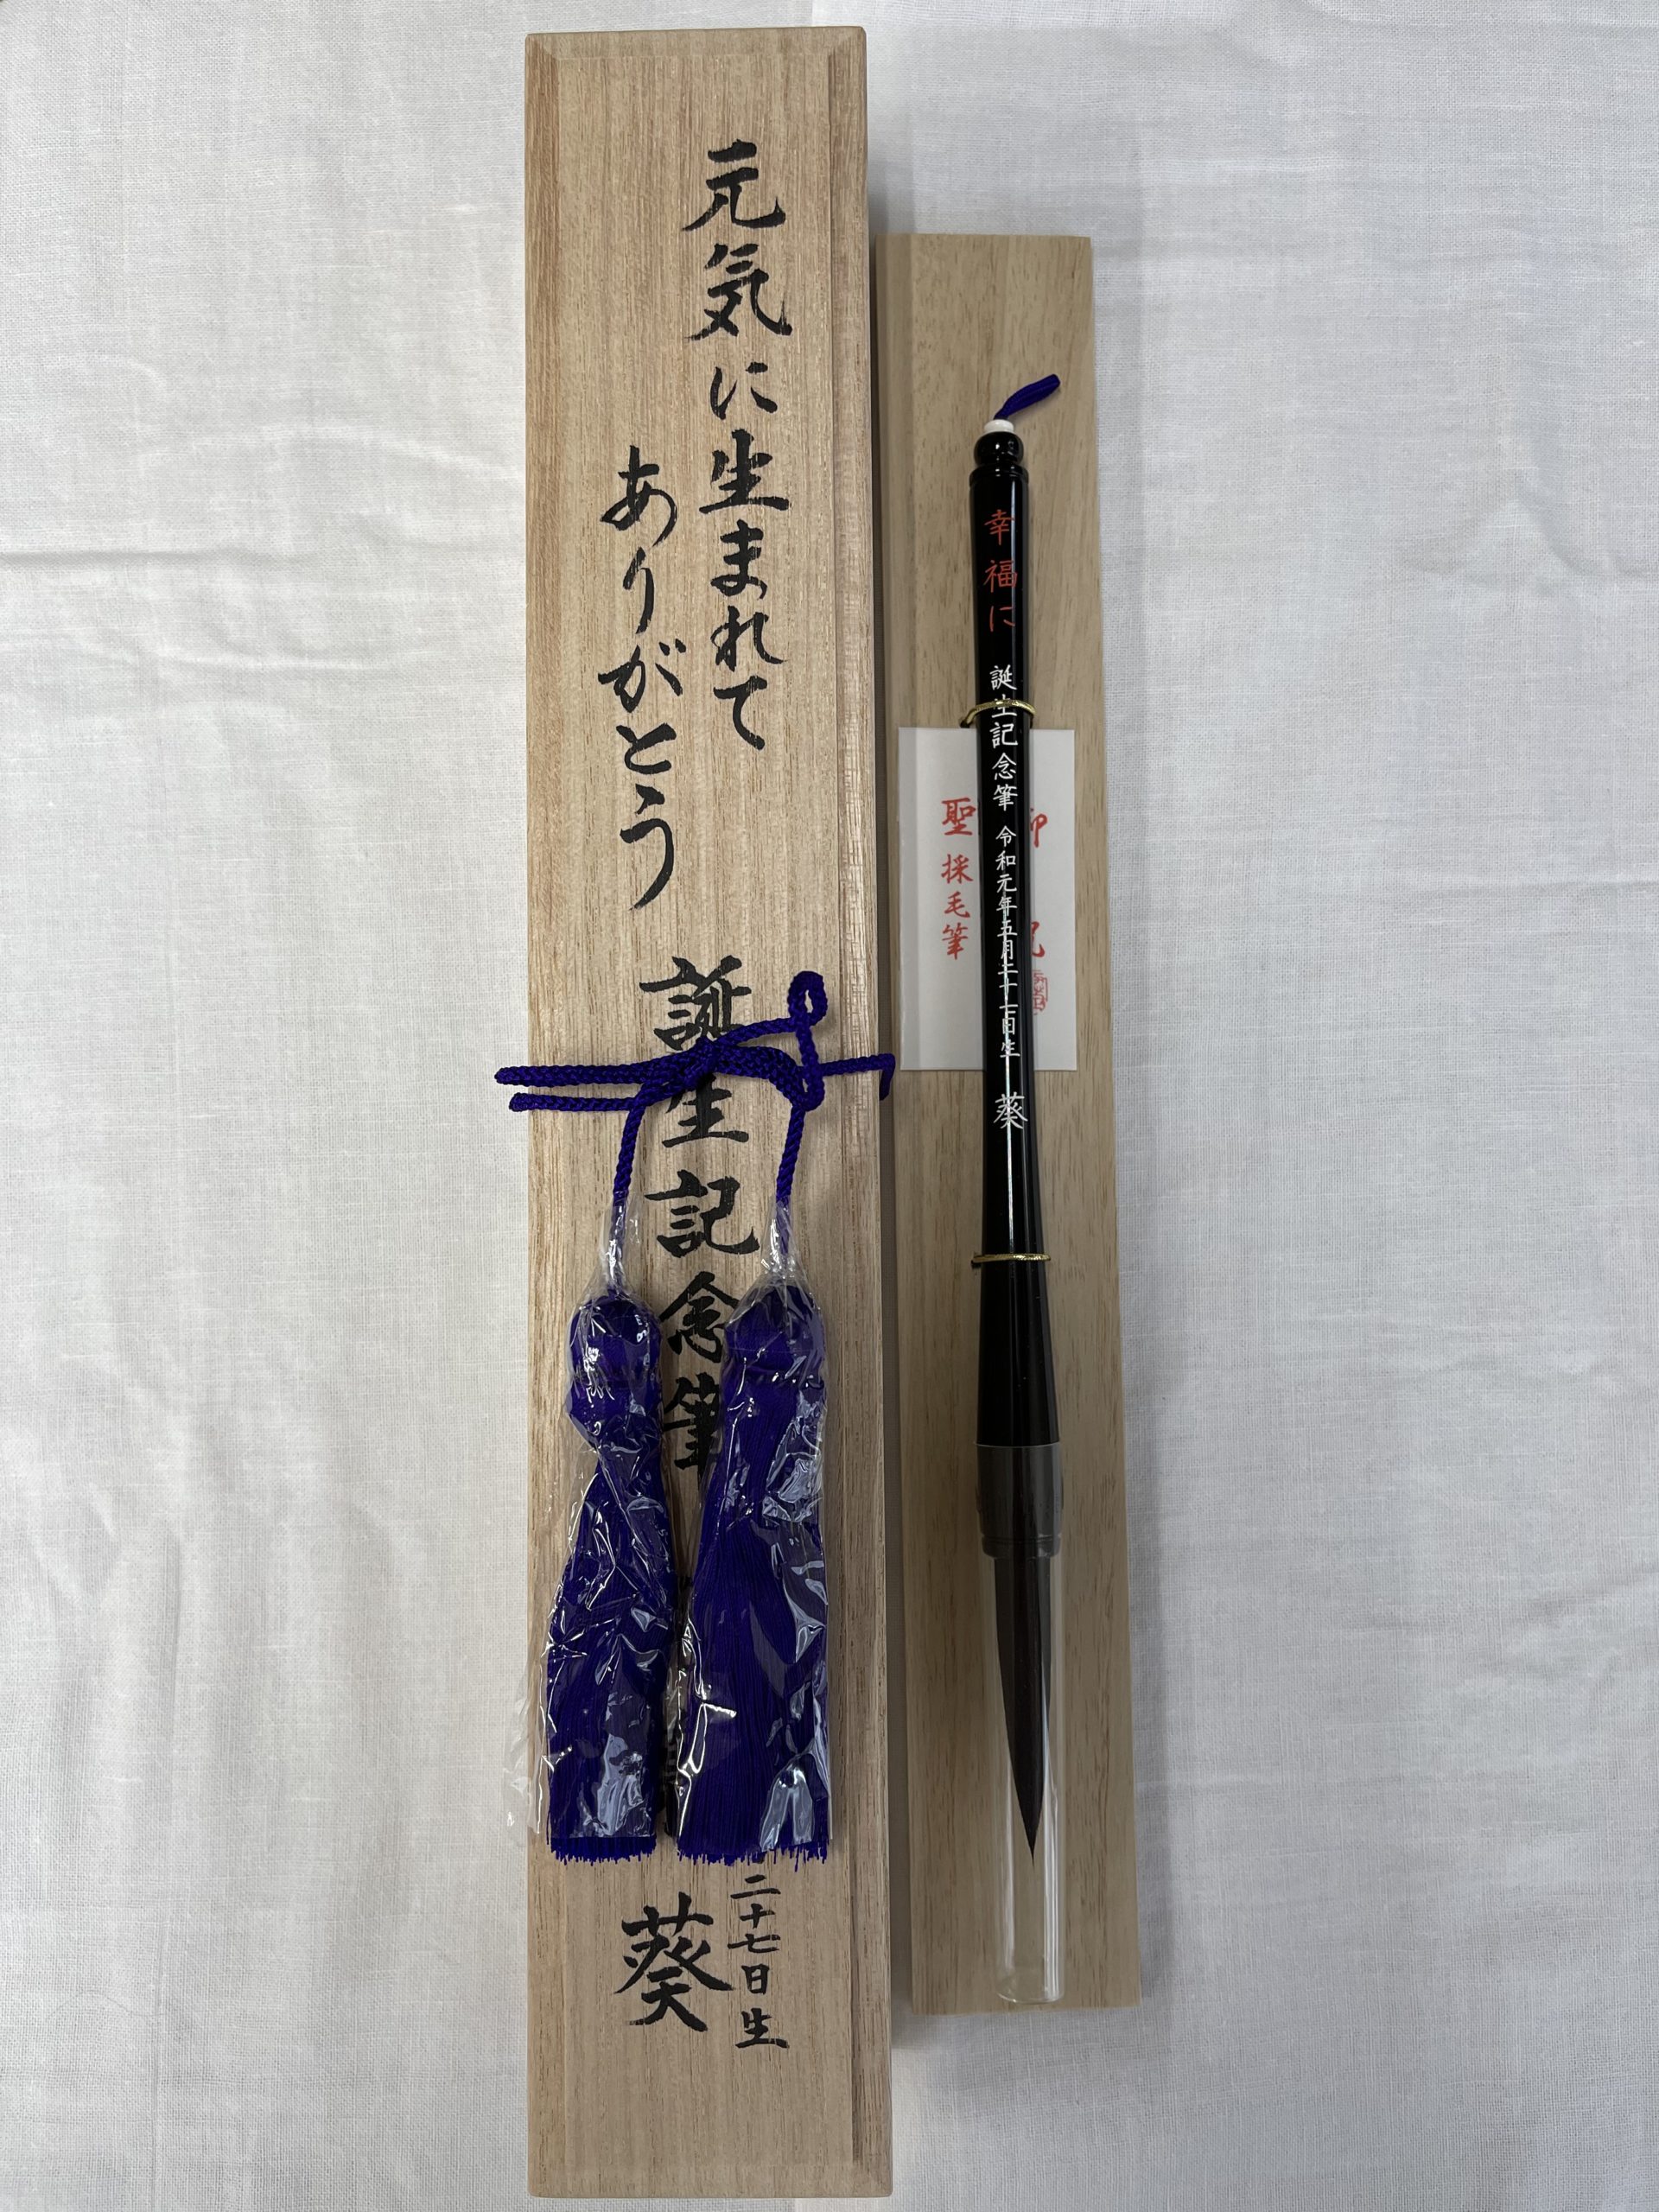 元気に生まれて
ありがとう
誕生記念筆
二十七日生
葵
幸福に 誕生記念筆 令和元年五月二十七日生 葵
聖採毛筆